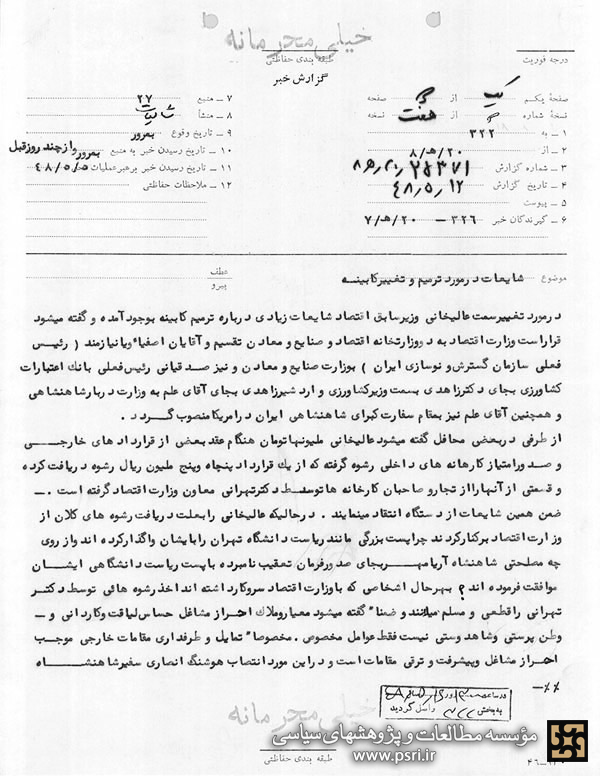 خیلی محرمانه
طبقه بندی حفاظتی
درجه فوریت
گزارش خبر
صفحه یکم از صفحه
نسخه شماره از هفت نسخه
۱ – به ۳۲۲
۲ – از ۲۰/هـ/۸
۳ – شماره گزارش
۴ – تاریخ گزارش ۴۸٫۵٫۱۲
۵ – پیوست
۶ – گیرندگان خبر ۳۲۶ – ۲۰/هـ/۷
۷ – منبع ۲۷
۸ – منشأ
۹ – تاریخ وقوع بمرور
۱۰ – تاریخ رسیدن خبر به منبع بمرور واز چند روز قبل
۱۱ – تاریخ رسیدن خبر برهبر عملیات ۴۸/۵/۵
۱۲ – ملاحظات حفاظتی
موضوع شایعات در مورد ترمیم و تغییر کابینه
عطف
پیرو
در مورد تغییر سمت عالیخانی وزیر سابق اقتصاد شایعات زیادی درباره ترمیم کابینه بوجود آمده و گفته میشود
قرار است وزارت اقتصاد به دو وزارتخانه اقتصاد و صنایع و معادن تقسیم و آقایان اصفیاء ویا نیازمند ( رئیس
فعلی سازمان گسترش و نوسازی ایران ) بوزارت صنایع و معادن و نیز صد قیانی رئیس فعلی بانک اعتبارات
کشاورزی بجای دکتر زاهدی بسمت وزیر کشاورزی و ارد شیرزاهدی بجای آقای علم به وزارت دربار شاهنشاهی
و همچنین آقای علم نیز بمقام سفارت کبرای شاهنشاهی ایران در امریکا منصوب گردد .
از طرفی در بعضی محافل گفته میشود عالیخانی ملیونها تومان هنگام عقد بعضی از قراردادهای خارجی
و صدور امتیاز کارخانه های داخلی رشوه گرفته که از یک قرارداد پنجاه وپنج ملیون ریال رشوه دریافت کرده
و قسمتی از آنها را از تجار و صاحبان کارخانه ها توسط دکتر تهرانی معاون وزارت اقتصاد گرفته است . –
ضمن همین شایعات از دستگاه انتقاد مینمایند . در حالیکه عالیخانی را بعلت دریافت رشوه های کلان از
وزارت اقتصاد برکنار کردند چرا پست بزرگی مانند ریاست دانشگاه تهران را بایشان واگذار کرده اند واز روی
چه مصلحتی شاهنشاه آریامهر بجای صدور فرمان تعقیب نامبرده با پست ریاست دانشگاهی ایشان
موافقت فرموده اند ؟ بهرحال اشخاصی که با وزارت اقتصاد سروکار داشته اند اخذ رشوه هائی توسط دکتر
تهرانی را قطعی و مسلم میدانند و ضمناً گفته میشود معیار و ملاک احراز مشاغل حساس لیاقت وکاردانی و –
وطن پرستی وشاهدوستی نیست فقط عوامل مخصوص . مخصوصا تمایل و طرفداری مقامات خارجی موجب
احراز مشاغل وپیشرفت و ترقی مقامات است و در این مورد انتصاب هوشنگ انصاری سفیر شاهنشاه
–××
در ساعت روز
به بخش ۳۲۲ واصل گردید
خیلی محرمانه
طبقه بندی حفاظتی
مؤسسه مطالعات و پژوهشهای سیاسی
www.psri.ir